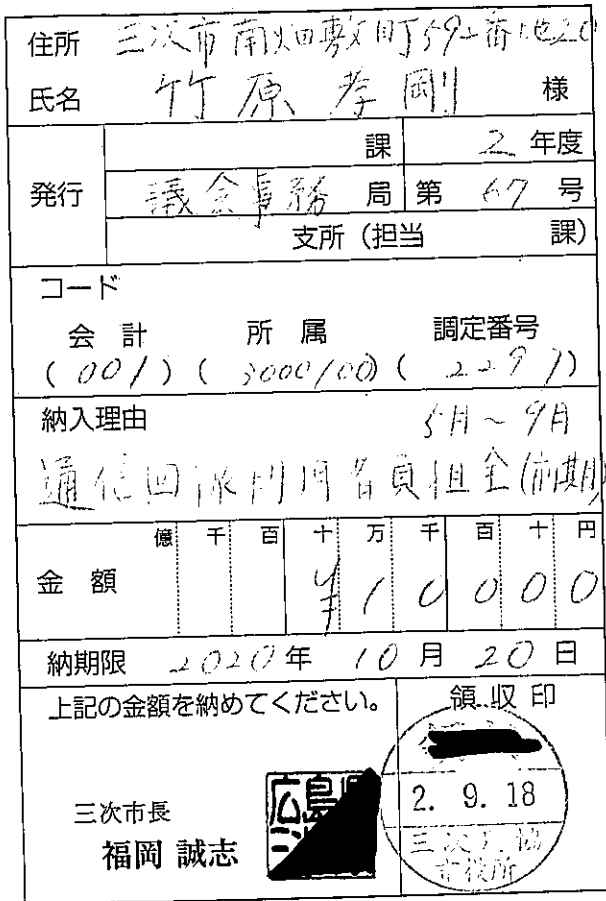 住所 三次市南畑敷町592番地20
氏名 竹原孝剛 様
発行
課 2 年度
議会事務 局 第 67 号
支所(担当 課)
コード
会計 所属 調定番号
(001) (3000100) (2297)
納入理由 5月~9月
通信回線利用者負担金(前期)
億 千 百 十 万 千 百 十 円
金額 ¥10000
納期限 2020年 10月 20日
上記の金額を納めてください。
領収印
2. 9. 18
三次市長
福岡 誠志
広島県
市役所